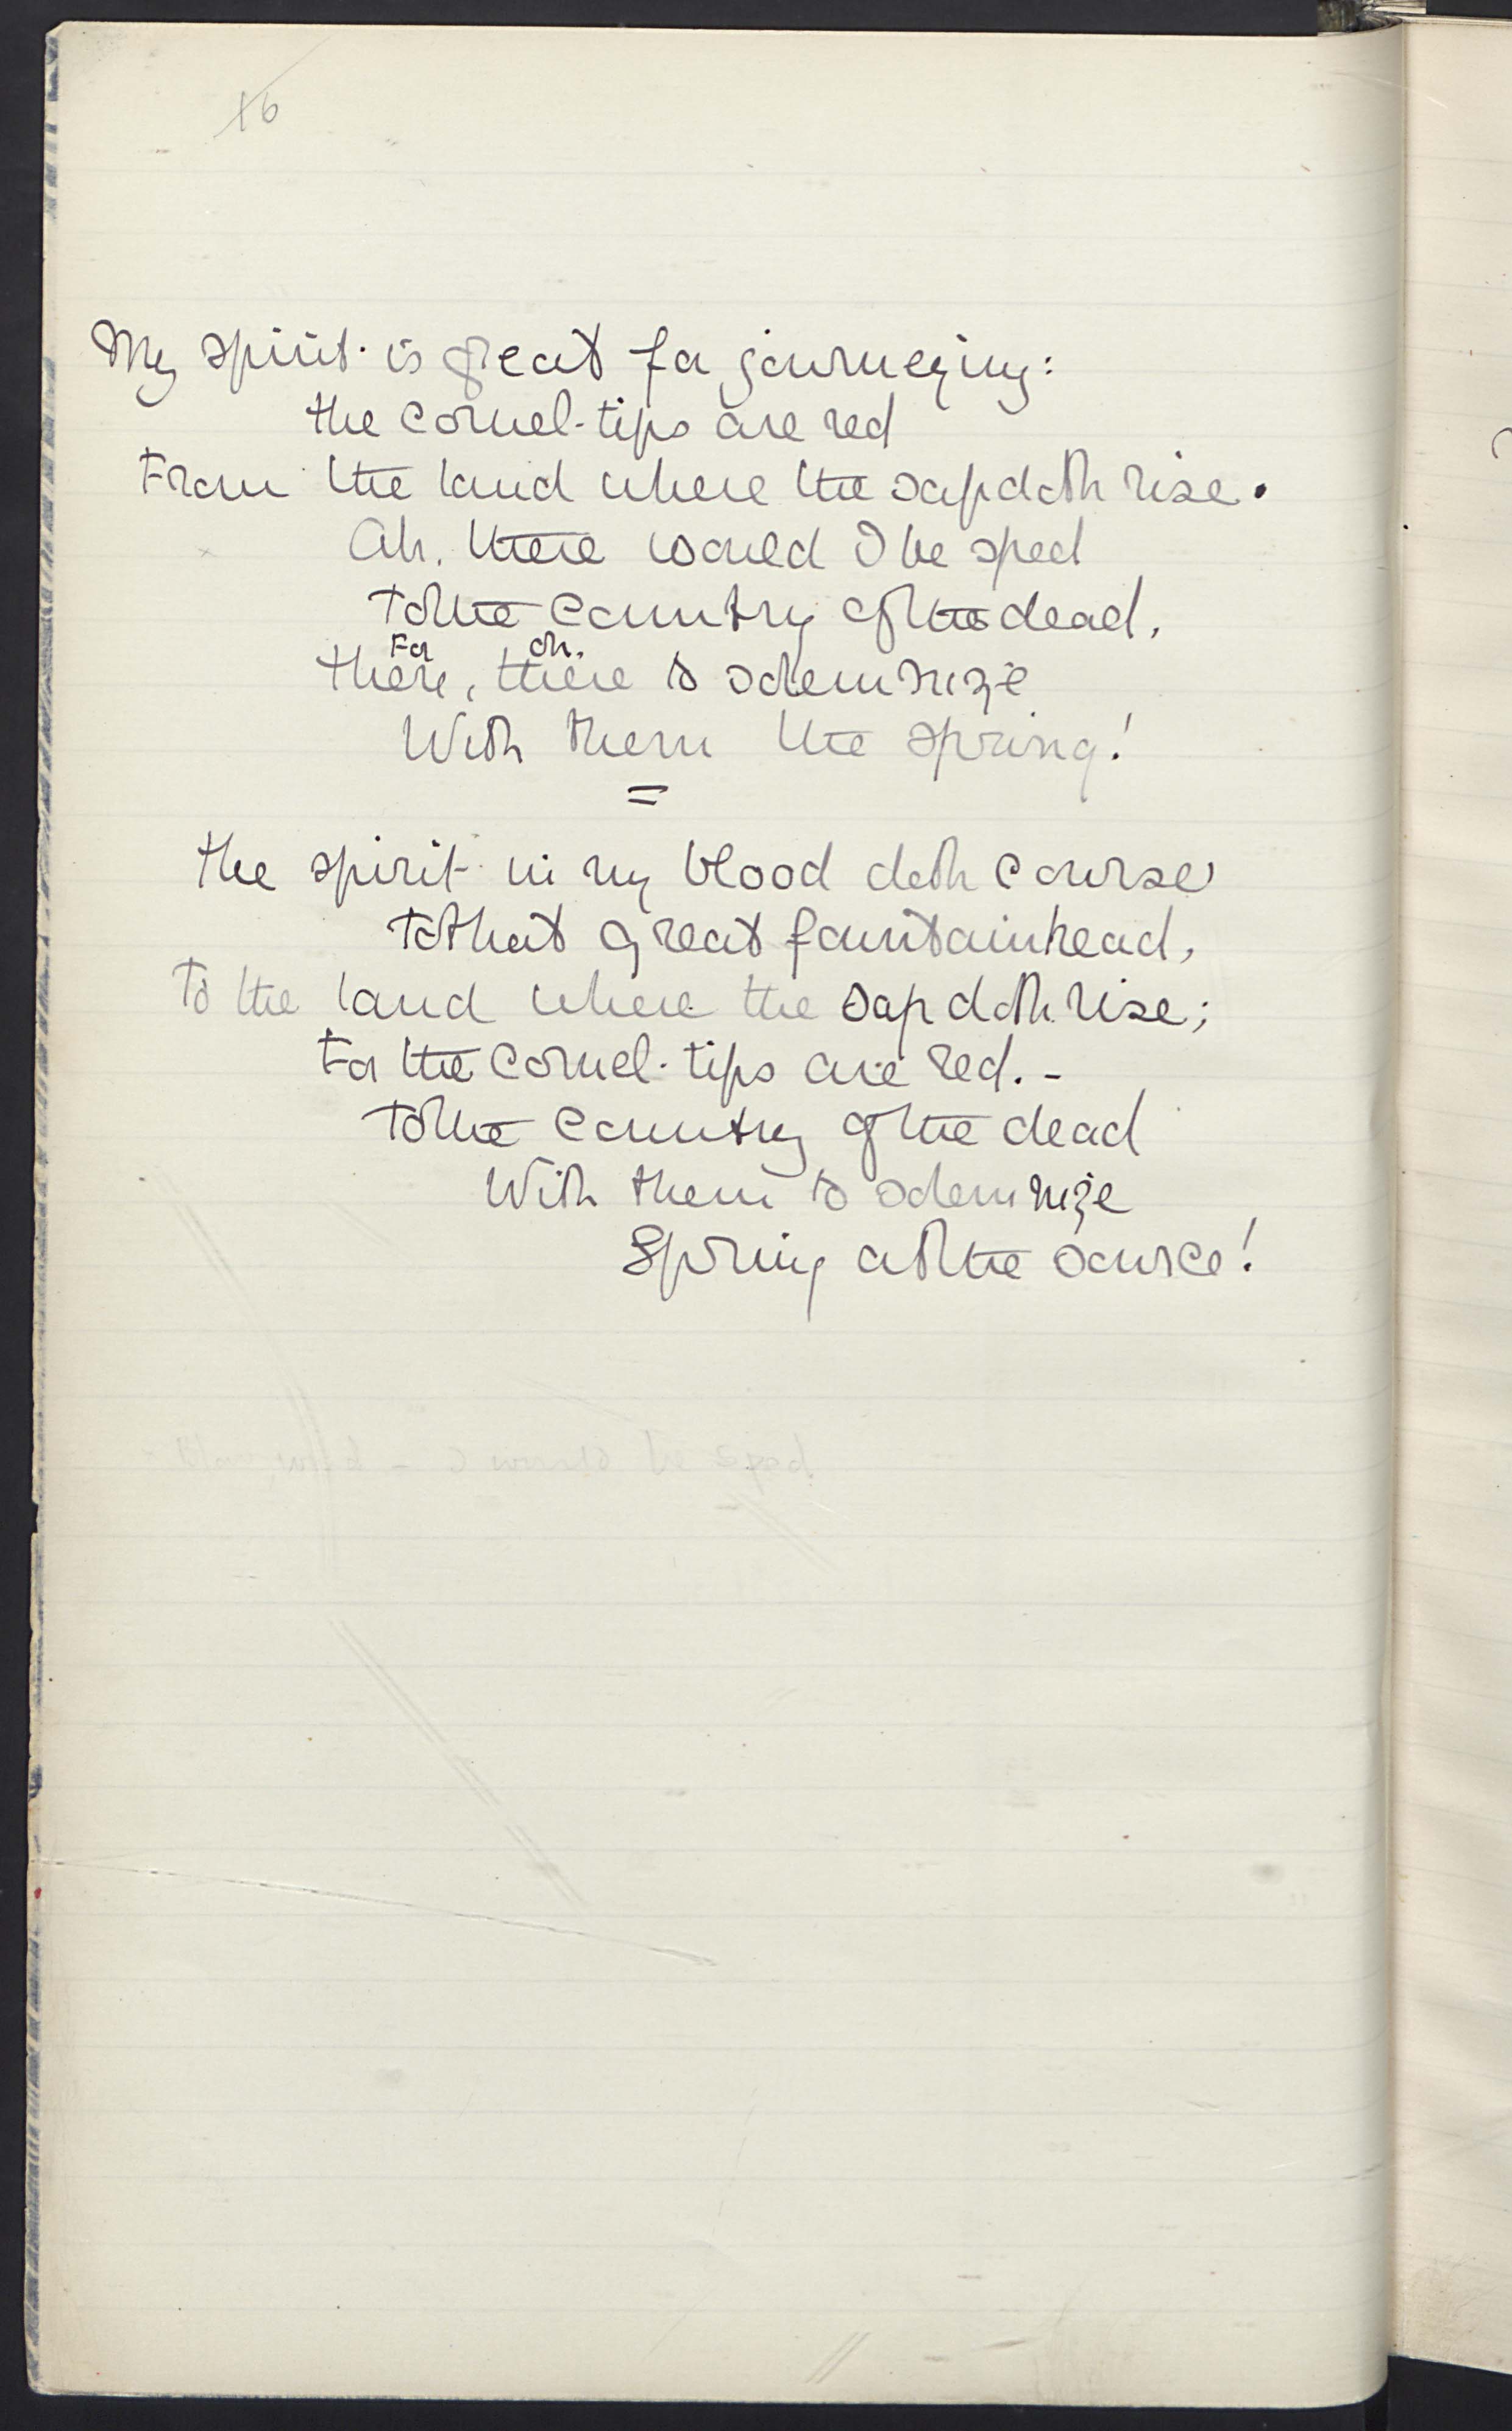 16
My spirit is great for journeying:
the cornel-tips are red
From the land where the sap doth rise.
Ah, there would I be sped
To the country of the dead,
For oh,
there, there to solemnize
With them the spring!
=
the spirit in my blood doth course
To that great fountainhead,
To the land where the sap doth rise;
For the cornel-tips are red. -
To the country of the dead
With them to solemnize
Spring at the source!